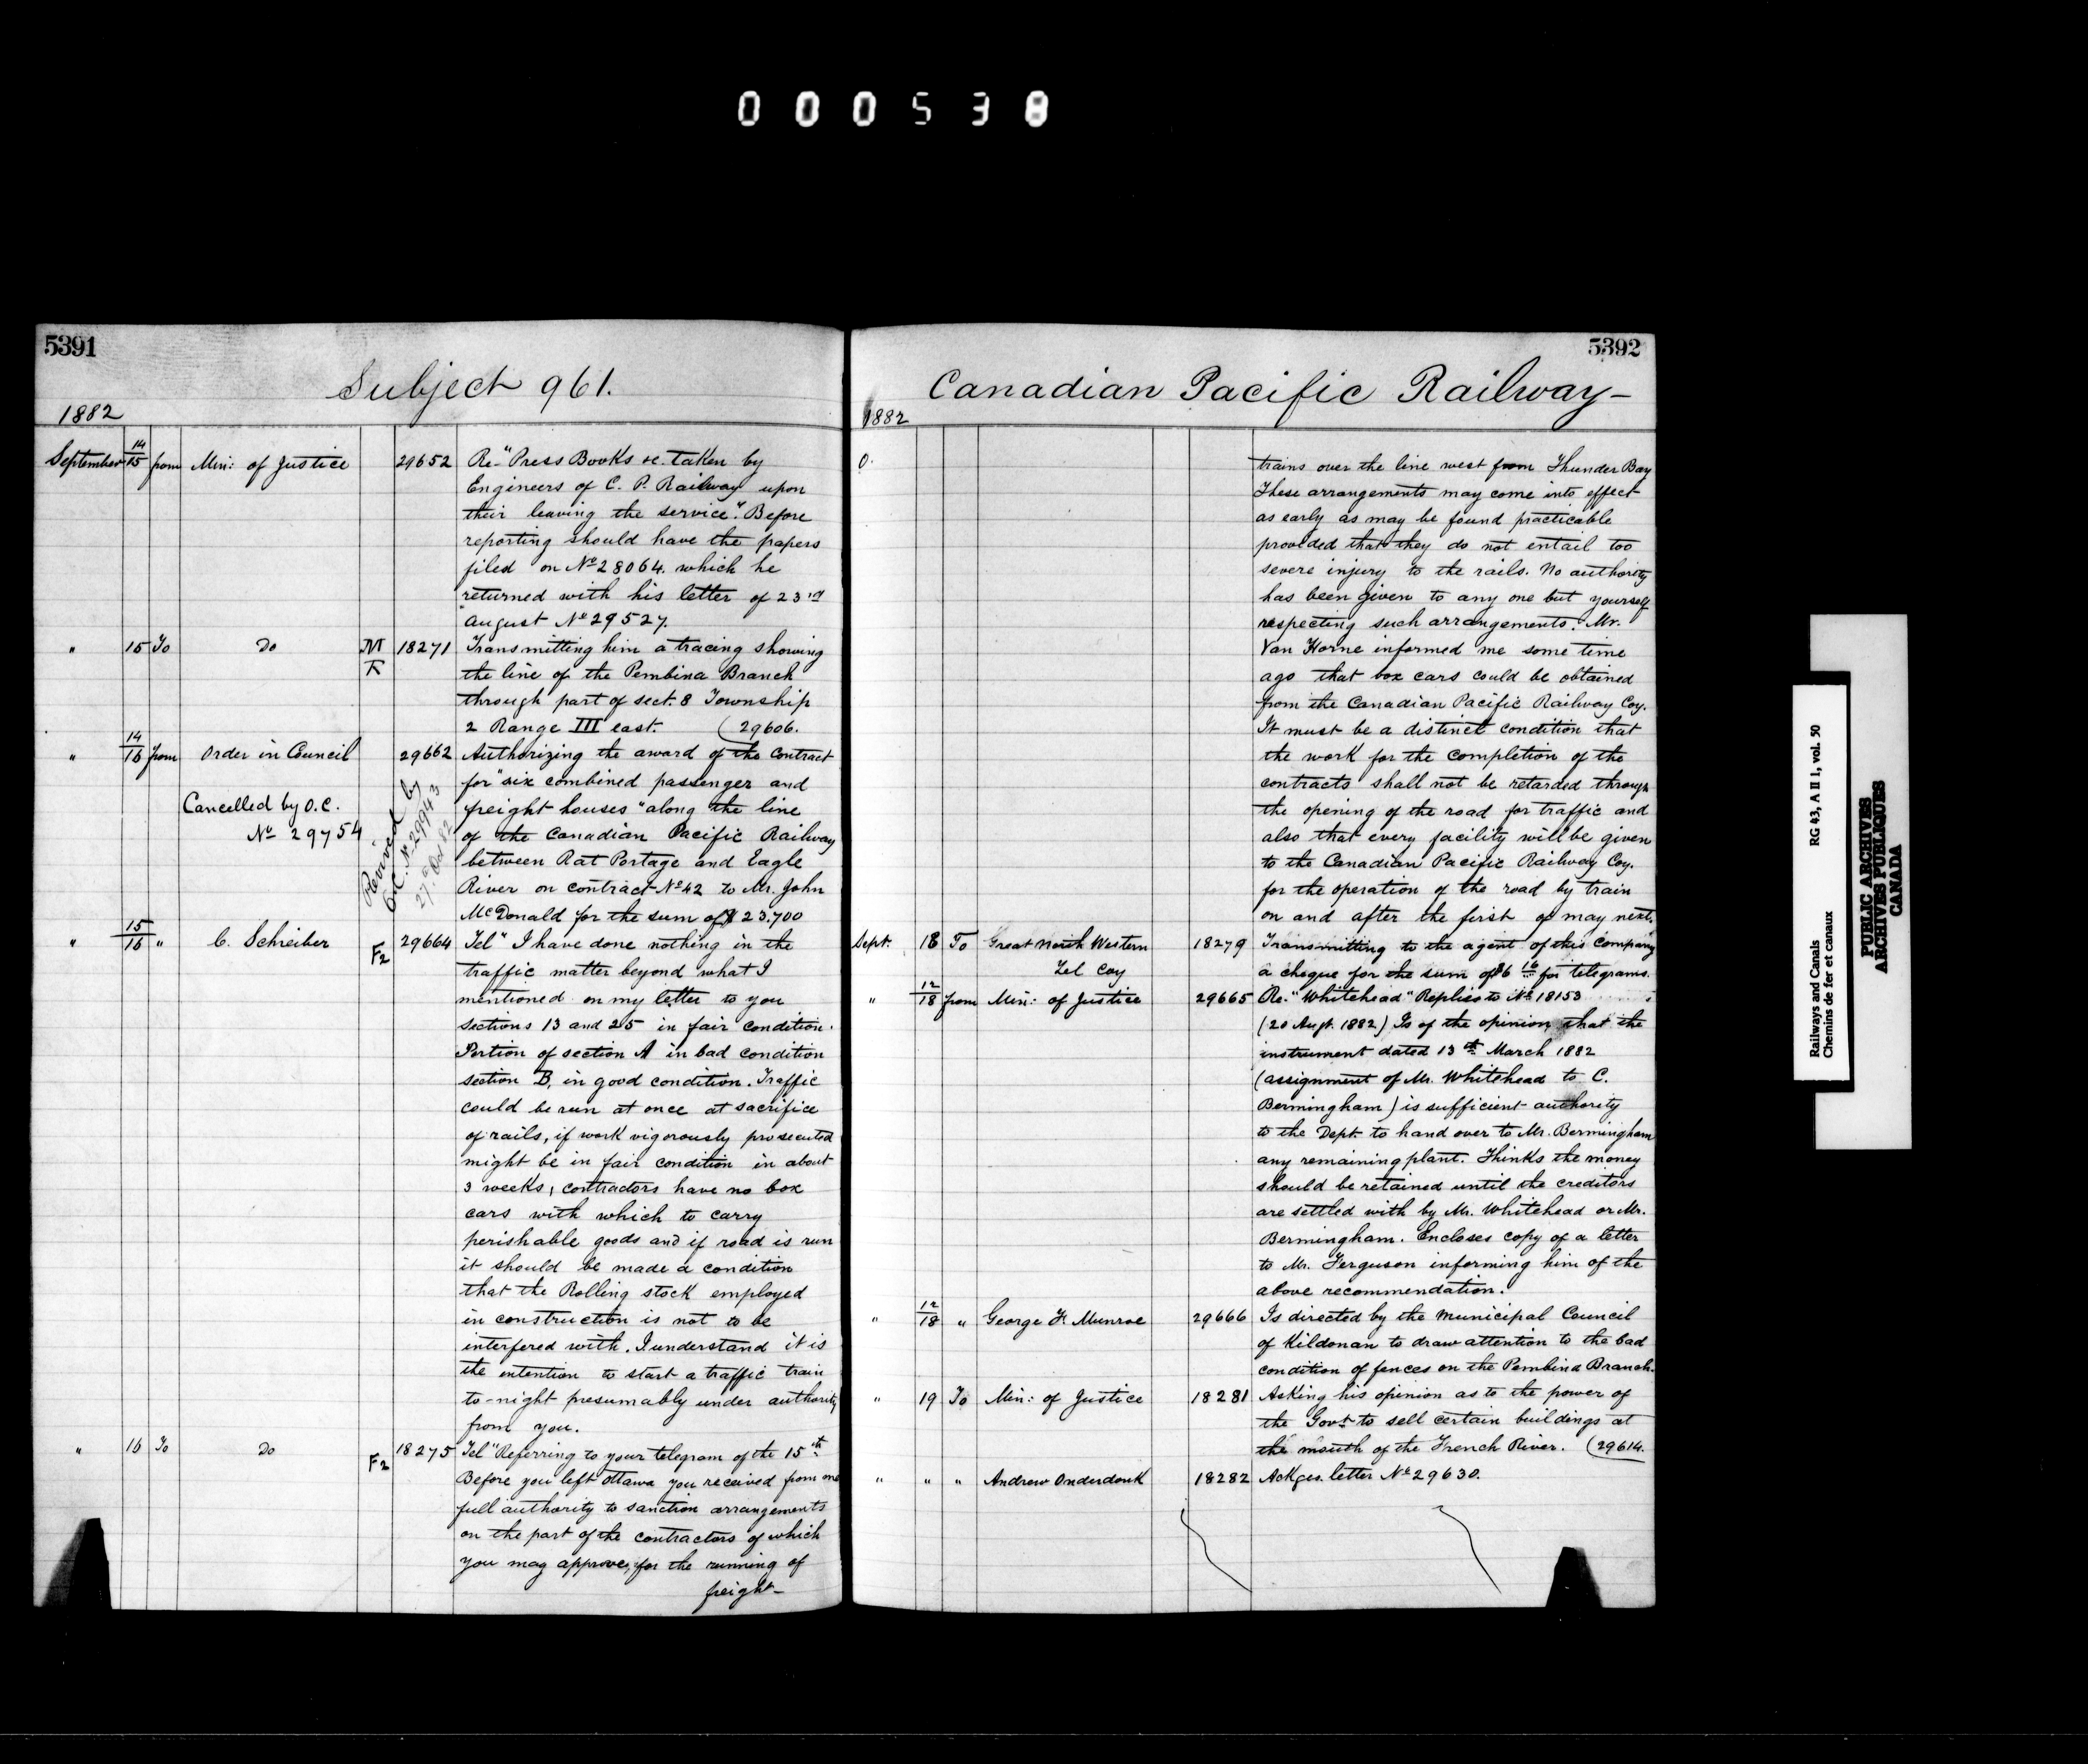 000538
5391
Subject 961.
1882
September 14/15 from Min: of Justice 29652 Re-"Press Books &c. taken by
Engineers of C. P. Railway upon
their leaving the service". Before
reporting should have the papers
filed on No 28064. which he
returned with his letter of 23rd
august No 29527.
" 15 To Do M T 18271 Transmitting him a tracing showing
the line of the Pembina Branch
through part of sect. 8 Township
2 Range III east. (29606.
" 14/16 from Order in Council 29662 Authorizing the award of the contract
for "six combined passenger and
Cancelled by O.C.
No 29754
Revived by
O.C. No 29943
27 Oct 82
freight houses" along the line
of the Canadian Pacific Railway
between Rat Portage and Eagle
River on contract No 42 to Mr. John
McDonald for the sum of $23,700
" 15/16 " C. Schreiber F2 29664 Tel "I have done nothing in the
traffic matter beyond what I
mentioned on my letter to you
sections 13 and 25 in fair condition.
Portion of section A in bad condition
section B, in good condition. Traffic
could be run at once at sacrifice
of rails, if work vigorously prosecuted
might be in fair condition in about
3 weeks, contractors have no box
cars with which to carry
perishable goods and if road is run
it should be made a condition
that the Rolling stock employed
in construction is not to be
interfered with. I understand it is
the intention to start a traffic train
to-night presumably under authority
from you.
" 16 To Do F2 18275 Tel "Referring to your telegram of the 15th
Before you left Ottawa you received from me
full authority to sanction arrangements
on the part of the contractors of which
you may approve, for the running of
freight-
5392
Canadian Pacific Railway-
1882
0.
trains over the line west from Thunder Bay
These arrangements may come into effect
as early as may be found practicable
provided that they do not entail too
severe injury to the rails. No authority
has been given to any one but yourself
respecting such arrangements. Mr.
Van Horne informed me some time
ago that box cars could be obtained
from the Canadian Pacific Railway Coy.
It must be a distinct condition that
the work for the completion of the
contracts shall not be retarded through
the opening of the road for traffic and
also that every facility will be given
to the Canadian Pacific Railway Coy.
for the operation of the road by train
on and after the first of may next.
Sept. 18 To Great North Western 18279 Transmitting to the agent of this Company
Tel Coy a cheque for the sum of $6 16 for telegrams.
" 12/18 from Min: of Justice 29665 Re-"Whitehead" Replies to No 18153
(20 Augt. 1882) Is of the opinion that the
instrument dated 13th March 1882
(assignment of Mr. Whitehead to C.
Bermingham) is sufficient authority
to the Dept. to hand over to Mr. Bermingham
any remaining plant. Thinks the money
should be retained until the creditors
are settled with by Mr. Whitehead or Mr.
Bermingham. Encloses copy of a letter
to Mr. Ferguson informing him of the
above recommendation.
" 12/18 " George F. Munroe 29666 Is directed by the Municipal Council
of Kildonan to draw attention to the bad
condition of fences on the Pembina Branch.
" 19 To Min: of Justice 18281 Asking his opinion as to the power of
the Govt to sell certain buildings at
the mouth of the French River. (29614.
" " " Andrew Onderdonk 18282 Ackges. letter No 29630.
Railways and Canals RG 43, A II 1, vol. 50
Chemins de fer et canaux
PUBLIC ARCHIVES
ARCHIVES PUBLIQUES
CANADA